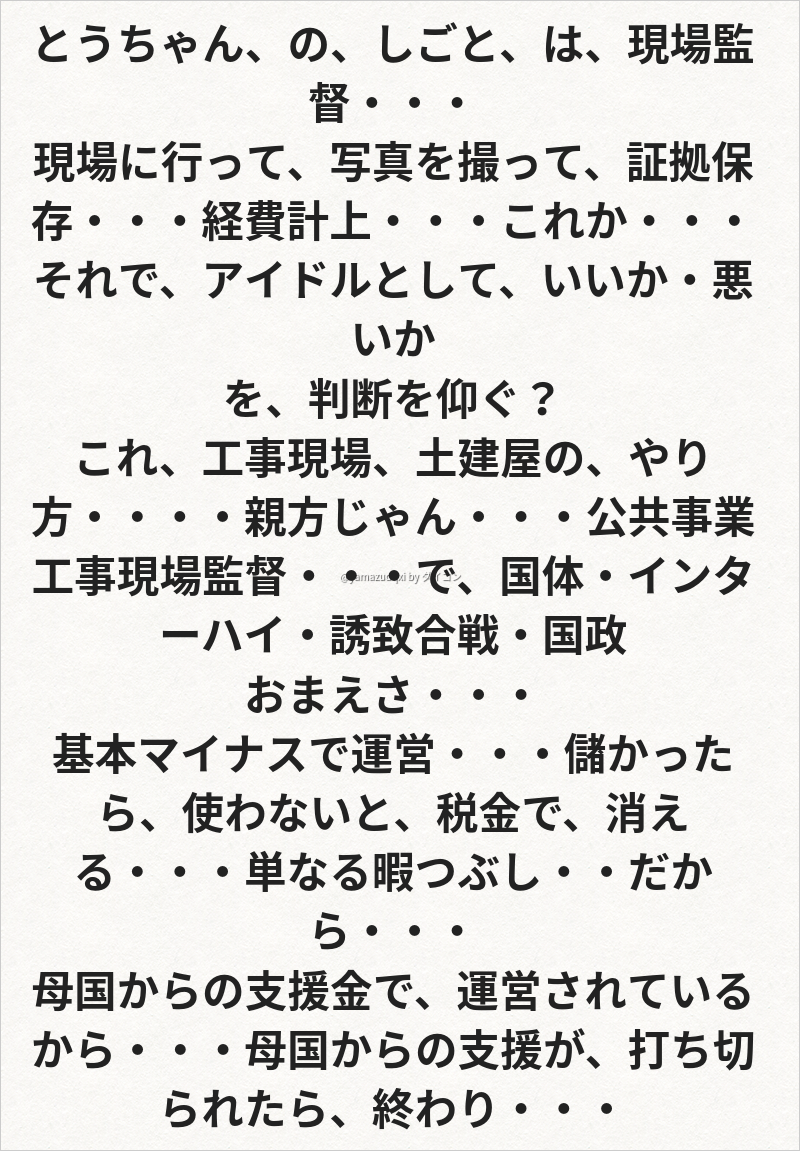 とうちゃん、の、しごと、は、現場監
督・・・
現場に行って、写真を撮って、証拠保
存・・・経費計上・・・これか・・・
それで、アイドルとして、いいか・悪
いか
を、判断を仰ぐ？
これ、工事現場、土建屋の、やり
方・・・・親方じゃん・・・公共事業
工事現場監督・・・で、国体・インタ
ーハイ・誘致合戦・国政
おまえさ・・・
基本マイナスで運営・・・儲かった
ら、使わないと、税金で、消え
る・・・単なる暇つぶし・・だか
ら・・・
母国からの支援金で、運営されている
から・・・母国からの支援が、打ち切
られたら、終わり・・・